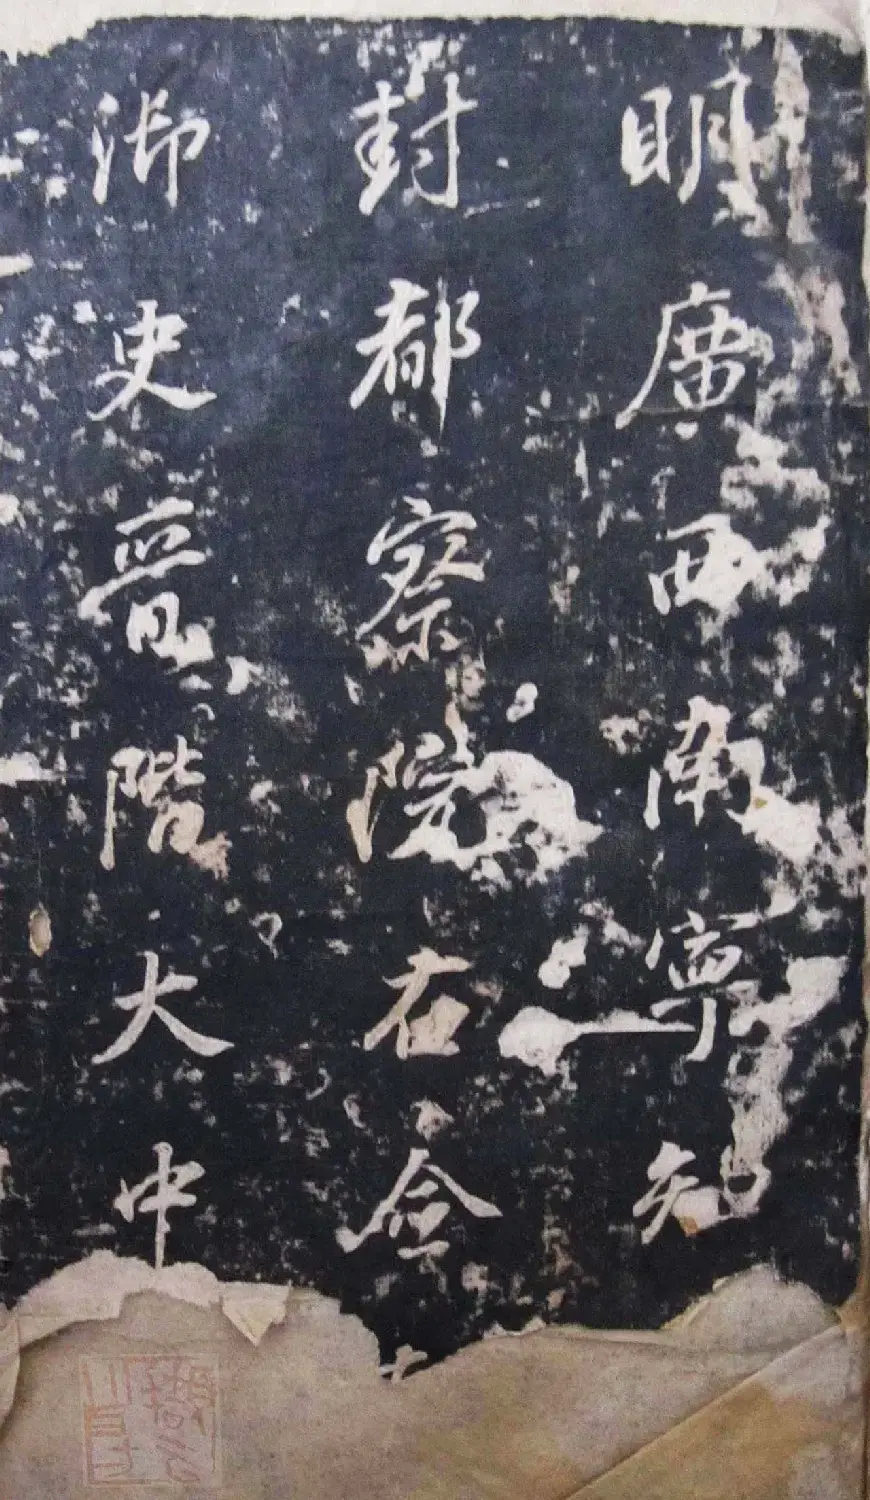 明廣西南寧知
封都察院右僉
御史晉階大中